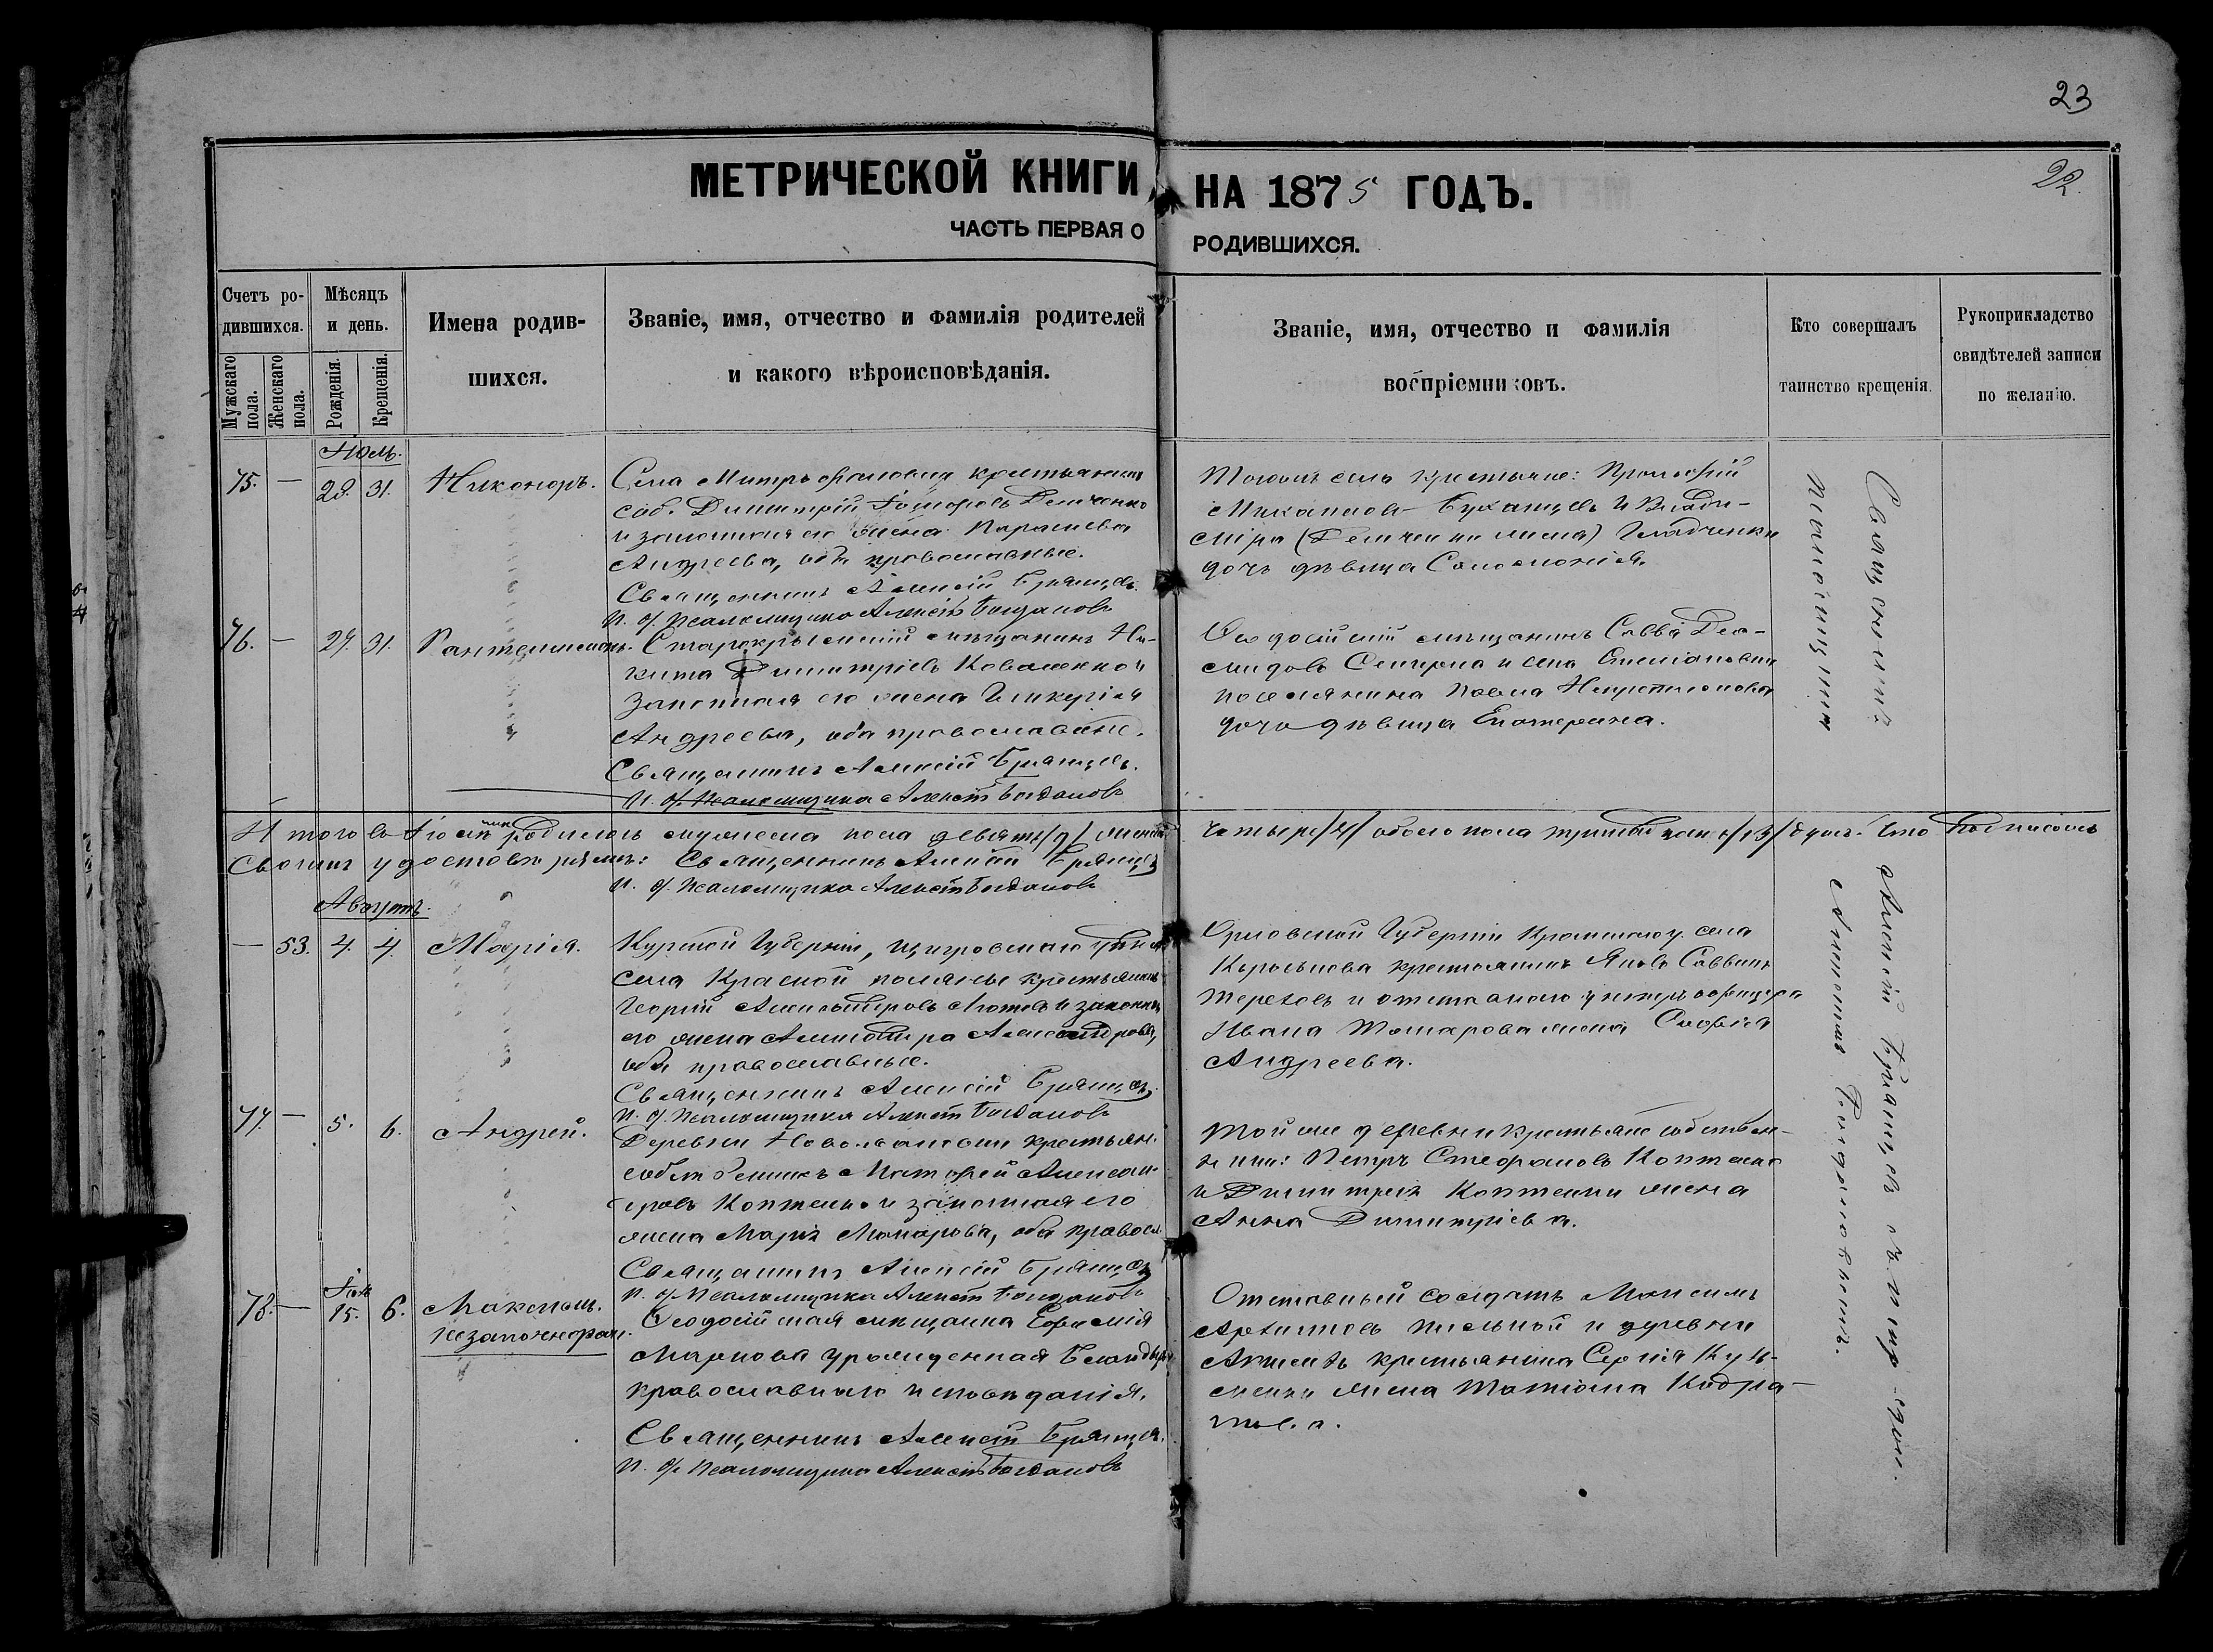 23
22.
МЕТРИЧЕСКОЙ КНИГИ НА 1875 ГОДЪ.
ЧАСТЬ ПЕРВАЯ О РОДИВШИХСЯ.
Счетъ ро-
дившихся.
Мужскаго пола.
Женскаго пола.
Мѣсяцъ
и день.
Рожденія.
Крещенія.
Имена родив-
шихся.
Званіе, имя, отчество и фамилія родителей
и какого вѣроисповѣданія.
Званіе, имя, отчество и фамилія
воспріемниковъ.
Кто совершалъ
таинство крещенія.
Рукоприкладство
свидѣтелей записи
по желанію.
Іюль.
75. — 28. 31. Никоноръ.
Села Митрофановки крестьянинъ
соб. Димитрій Демченко
и законная его жена Параскева
Андреева, оба православные.
Священникъ Алексій Брянцевъ.
И. д. псаломщика Алексѣй Богдановъ
Тогоже села крестьяне: Прокофій
Михаиловъ Буханцевъ и Влади-
міра (Демченки жена) Гладченки
дочь дѣвица Соломонія.
76. — 29. 31. Пантелеимонъ.
Старокрымскій мѣщанинъ Ни-
кита Димитріевъ Коваленко и
законная его жена Гликерія
Андреева, оба православные.
Священникъ Алексій Брянцевъ.
И. д. псаломщика Алексѣй Богдановъ
Ѳеодосійскій мѣщанинъ Савва
и села
поселянина Павла
дочь дѣвица Екатерина.
Итого въ Іюлѣ родилось мужеска пола девять /9/ женска четыре /4/ обоего пола тринадцать /13/ душъ. Что подписомъ
своимъ удостовѣряемъ: Священникъ Алексій Брянцевъ
И. д. псаломщика Алексѣй Богдановъ
Августъ.
— 53. 4. 4. Марія.
Курской Губерніи, Щигровскаго уѣзда
села Красной поляны крестьянинъ
Георгій Александровъ и законная
его жена Александра Александрова,
оба православные.
Священникъ Алексій Брянцевъ.
И. д. псаломщика Алексѣй Богдановъ
Орловской Губерніи Кромскаго у. села
крестьянинъ Яковъ Саввинъ
Тереховъ и отставнаго унтеръ офицера
Ивана жена Софія
Андреева.
77. — 5. 6. Андрей.
Деревни крестьян.
собственникъ Матфей Алексан-
дровъ Коптенко и законная его
жена Марія Макарова, оба правосл.
Священникъ Алексій Брянцевъ
И. д. псаломщика Алексѣй Богдановъ
Той же деревни крестьяне собствен-
ники: Петръ Стефановъ Коптенко
и Димитрія Коптенки жена
Анна Димитріева.
78. — Іюля 15. 6. Максимъ.
незаконнорож.
Ѳеодосійская мѣщанка Евфимія
Маркова урожденная
православнаго исповѣданія.
Священникъ Алексій Брянцевъ.
И. д. псаломщика Алексѣй Богдановъ
Отставный солдатъ Максимъ
Архиповъ и деревни
крестьянина Сергія Кузь-
менки жена Татіана Кодра-
това.
Священникъ Алексій Брянцевъ съ
псаломщикомъ Алексѣемъ Богдановымъ.